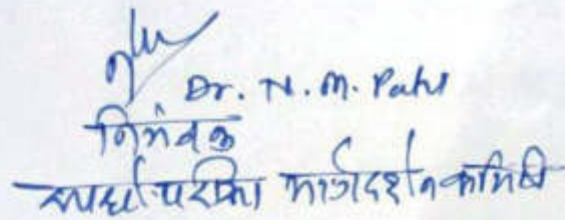 Dr. N. M. Patil
निमंत्रक
स्पर्धा परीक्षा मार्गदर्शन कमिटी